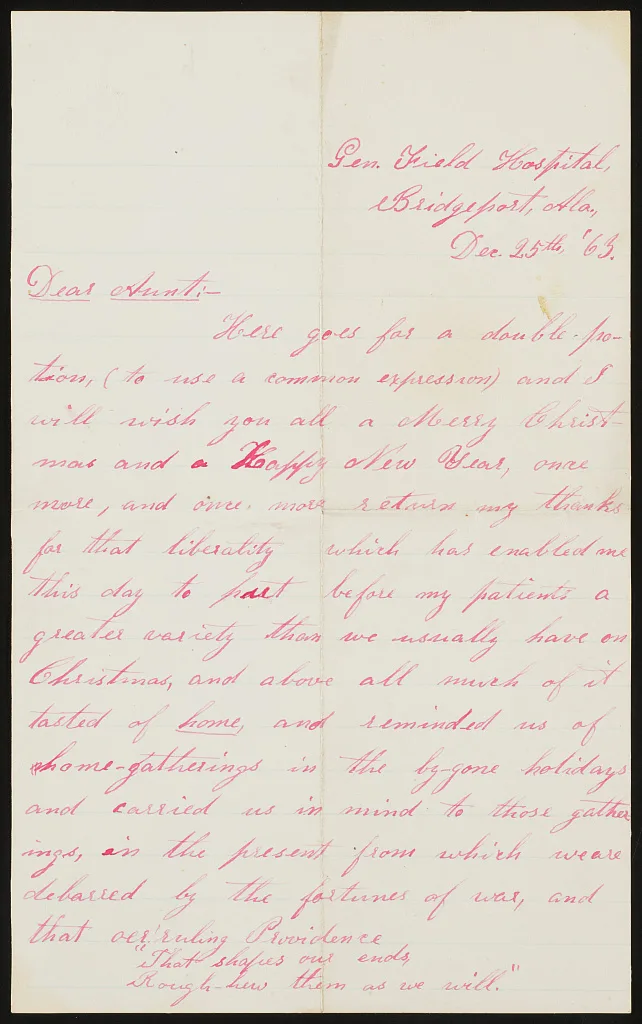 Gen. Field Hospital,
Bridgeport, Ala.,
Dec. 25th, '63.
Dear Aunt:—
Here goes for a double-po-
tion, (to use a common expression) and I
will wish you all a Merry Christ-
mas and a Happy New Year, once
more, and once more return my thanks
for that liberality which has enabled me
this day to put before my patients a
greater variety than we usually have on
Christmas, and above all much of it
tasted of home, and reminded us of
home-gatherings in the by-gone holidays
and carried us in mind to those gather
ings, in the present from which we are
debarred by the fortunes of war, and
that oer'ruling Providence
"That shapes our ends,
Rough-hew them as we will."